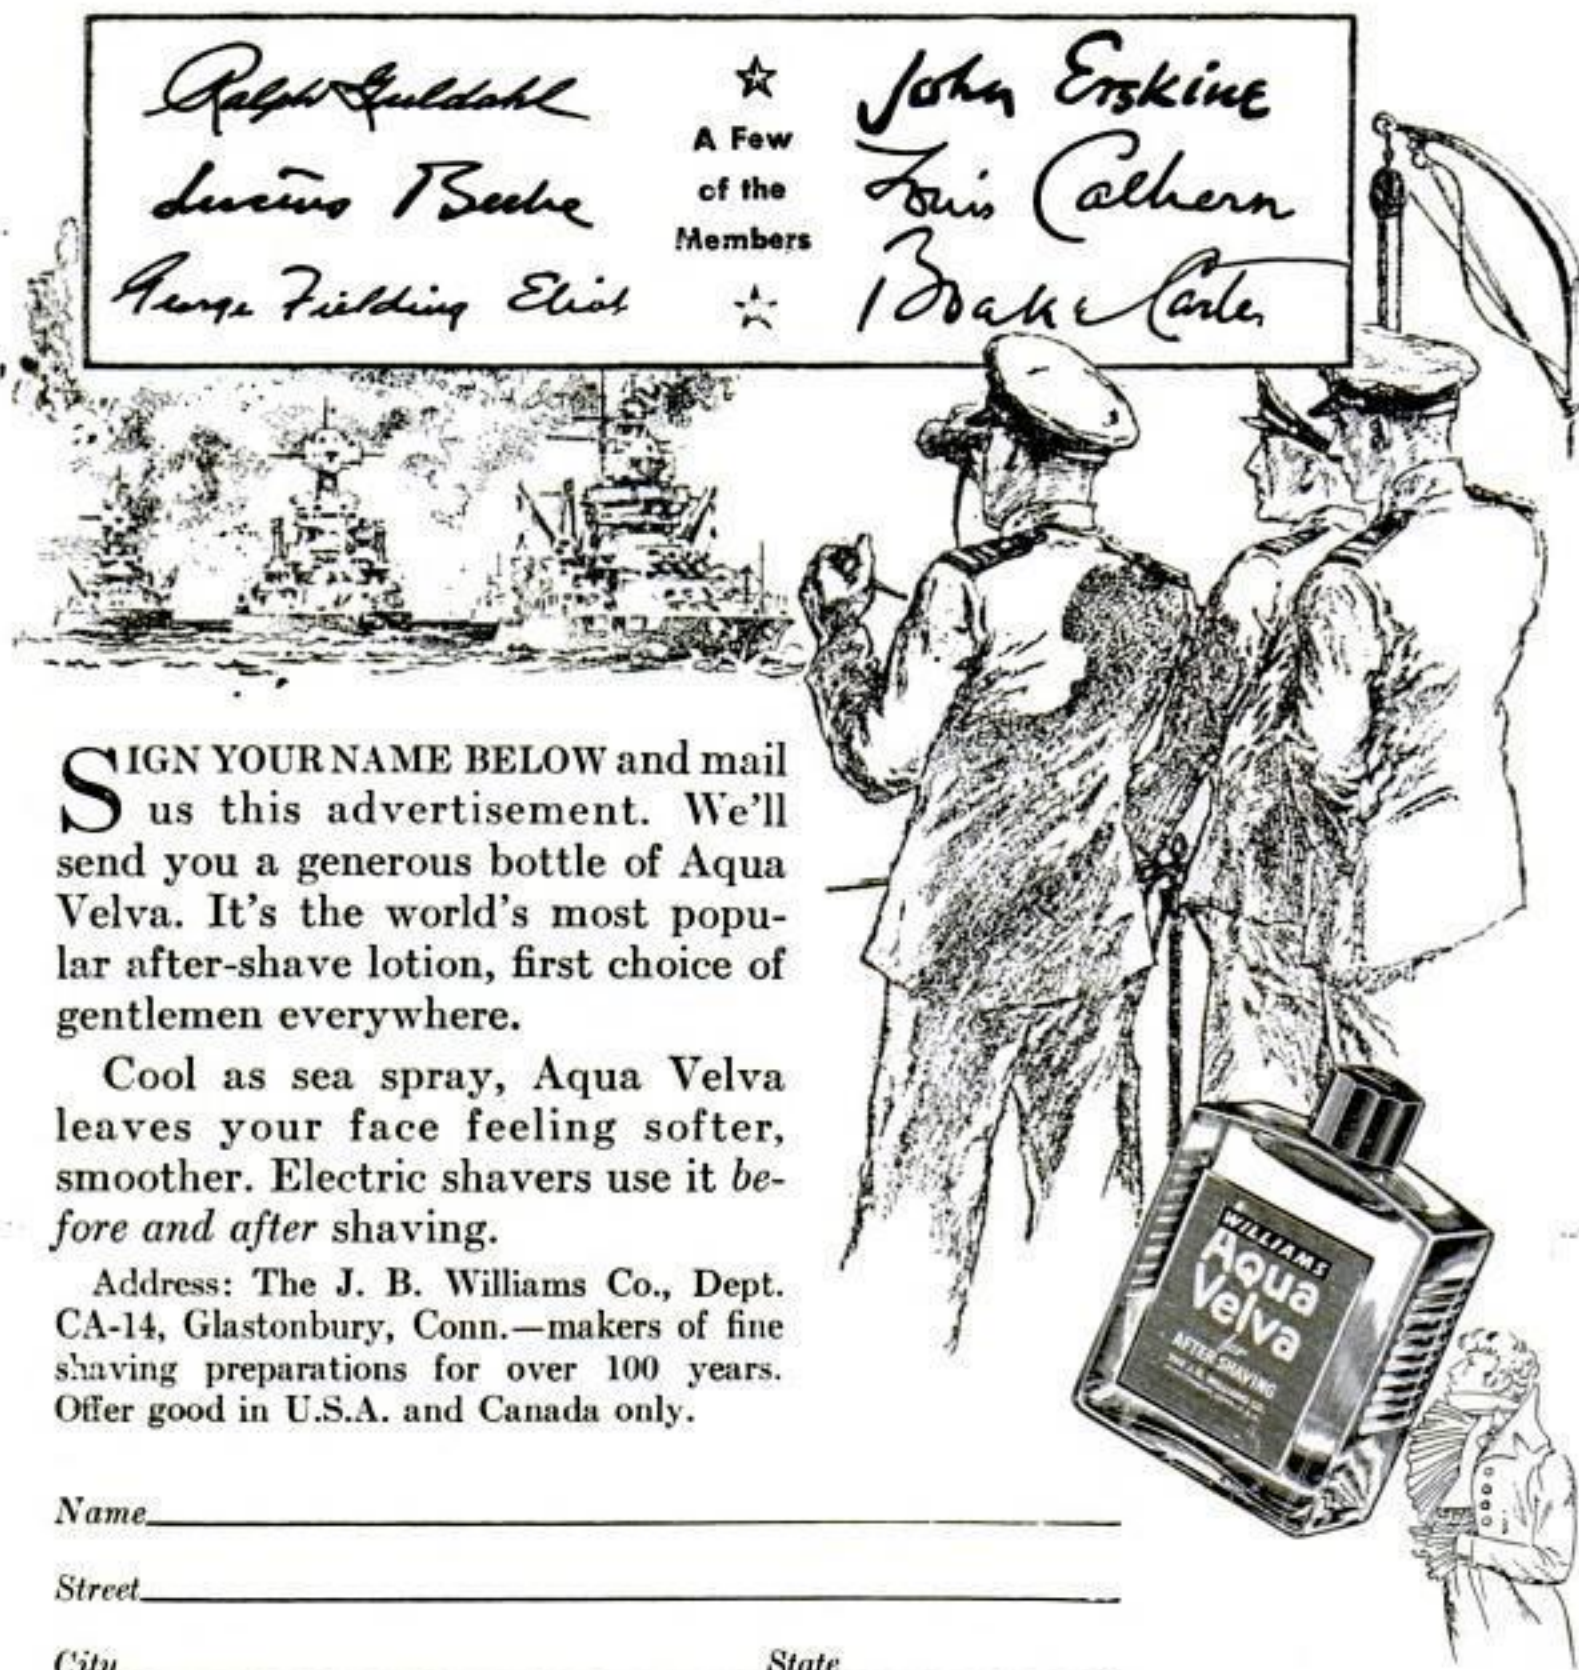 Ralph Guldahl
Lucius Beebe
George Fielding Eliot
A Few
of the
Members
John Erskine
Louis Calhern
Boake Carter
SIGN YOUR NAME BELOW and mail
us this advertisement. We'll
send you a generous bottle of Aqua
Velva. It's the world's most popu-
lar after-shave lotion, first choice of
gentlemen everywhere.
Cool as sea spray, Aqua Velva
leaves your face feeling softer,
smoother. Electric shavers use it be-
fore and after shaving.
Address: The J. B. Williams Co., Dept.
CA-14, Glastonbury, Conn.—makers of fine
shaving preparations for over 100 years.
Offer good in U.S.A. and Canada only.
WILLIAMS
Aqua
Velva
for
AFTER SHAVING
Name
Street
City State